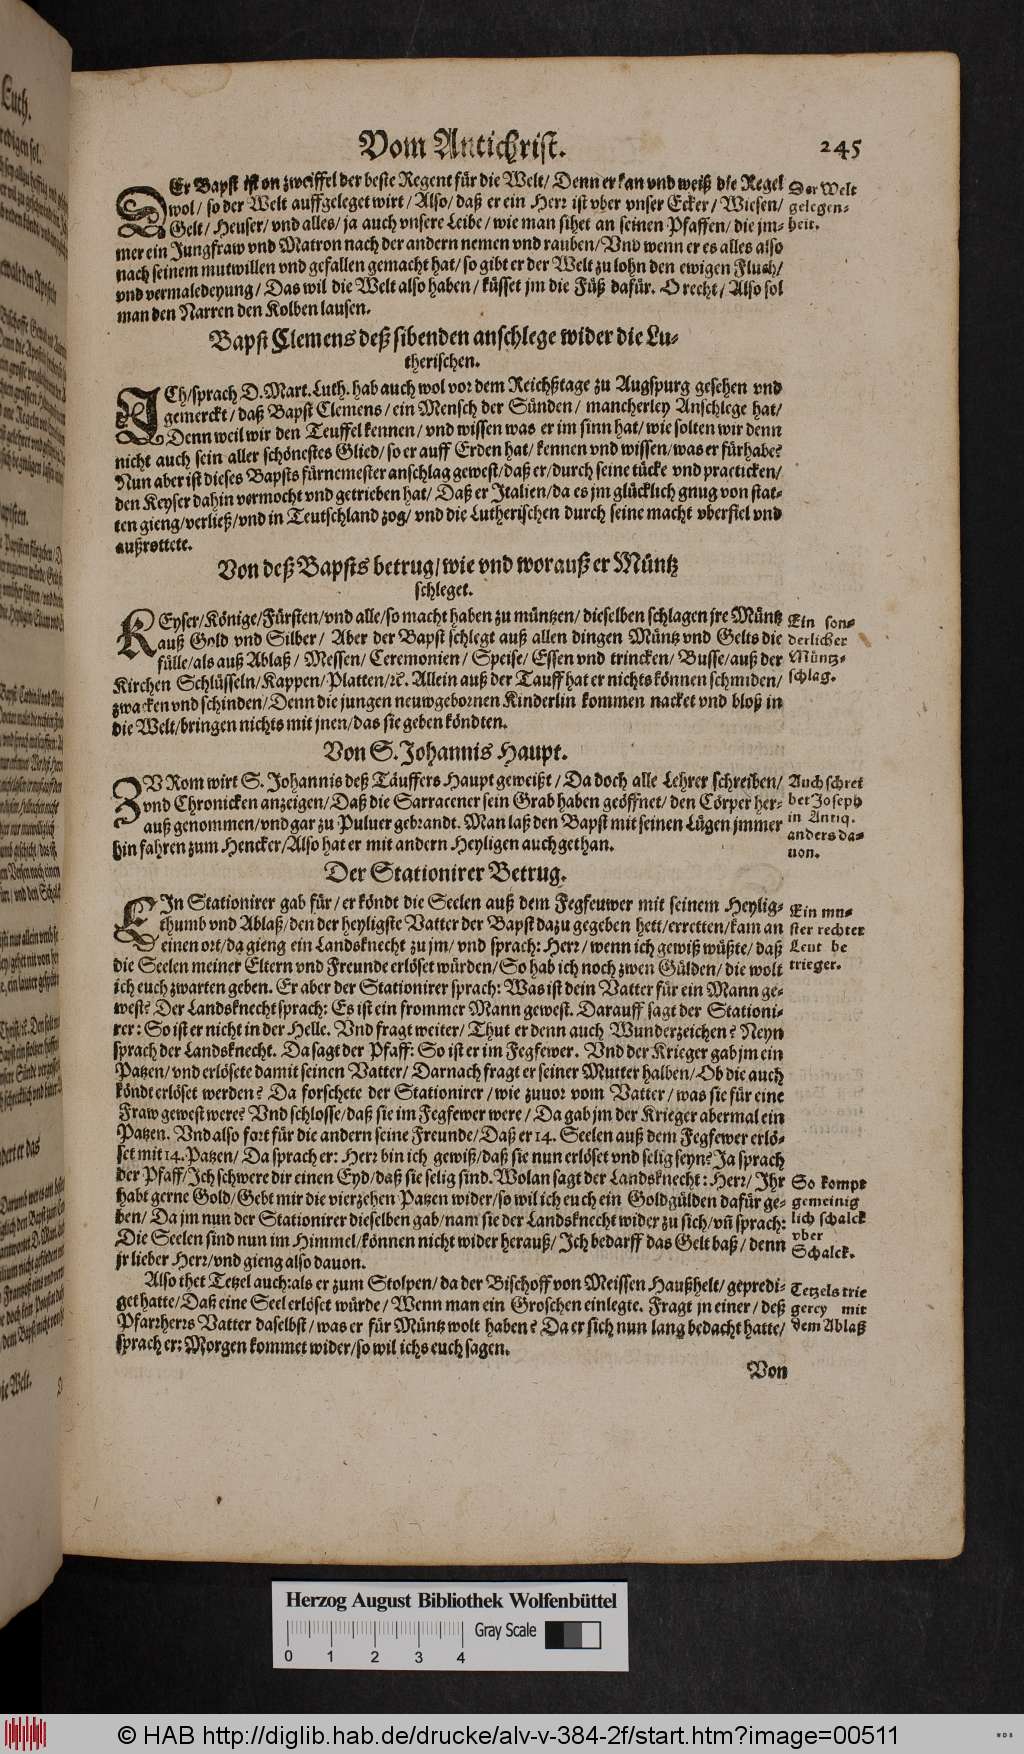 Vom Antichrist.
245
DEr Bapst ist on zweiffel der beste Regent für die Welt/ Denn er kan vnd weiß die Regel
wol/ so der Welt auffgeleget wirt/ Also/ daß er ein Herr ist vber vnser Ecker/ Wiesen/
Gelt/ Heuser/ vnd alles/ ja auch vnsere Leibe/ wie man sihet an seinen Pfaffen/ die jm-
mer ein Jungfraw vnd Matron nach der andern nemen vnd rauben/ Vnd wenn er es alles also
nach seinem mutwillen vnd gefallen gemacht hat/ so gibt er der Welt zu lohn den ewigen Fluch/
vnd vermaledeyung/ Das wil die Welt also haben/ küsset jm die Füß dafür. O recht/ Also sol
man den Narren den Kolben lausen.
Der Welt
gelegen-
heit.
Bapst Clemens deß sibenden anschlege wider die Lu-
therischen.
ICh/ sprach D. Mart. Luth. hab auch wol vor dem Reichßtage zu Augspurg gesehen vnd
gemerckt/ daß Bapst Clemens/ ein Mensch der Sünden/ mancherley Anschlege hat/
Denn weil wir den Teuffel kennen/ vnd wissen was er im sinn hat/ wie solten wir denn
nicht auch sein aller schönestes Glied/ so er auff Erden hat/ kennen vnd wissen/ was er fürhabe?
Nun aber ist dieses Bapsts fürnemester anschlag gewest/ daß er/ durch seine tücke vnd practicken/
den Keyser dahin vermocht vnd getrieben hat/ Daß er Italien/ da es jm glücklich gnug von stat-
ten gieng/ verließ/ vnd in Teutschland zog/ vnd die Lutherischen durch seine macht vberfiel vnd
außrottete.
Von deß Bapsts betrug/ wie vnd worauß er Müntz
schleget.
KEyser/ Könige/ Fürsten/ vnd alle/ so macht haben zu müntzen/ dieselben schlagen jre Müntz
auß Gold vnd Silber/ Aber der Bapst schlegt auß allen dingen Müntz vnd Gelts die
fülle/ als auß Ablaß/ Messen/ Ceremonien/ Speise/ Essen vnd trincken/ Busse/ auß der
Kirchen Schlüsseln/ Kappen/ Platten/ ꝛc. Allein auß der Tauff hat er nichts können schmiden/
zwacken vnd schinden/ Denn die jungen neuwgebornen Kinderlin kommen nacket vnd bloß in
die Welt/ bringen nichts mit jnen/ das sie geben köndten.
Ein son-
derlicher
Müntz-
schlag.
Von S. Johannis Haupt.
ZV Rom wirt S. Johannis deß Täuffers Haupt geweißt/ Da doch alle Lehrer schreiben/
vnd Chronicken anzeigen/ Daß die Sarracener sein Grab haben geöffnet/ den Cörper her-
auß genommen/ vnd gar zu Puluer gebrandt. Man laß den Bapst mit seinen Lügen jmmer
hin fahren zum Hencker/ Also hat er mit andern Heyligen auch gethan.
Auch schrei
bet Joseph
in Antiq.
anders da-
uon.
Der Stationirer Betrug.
EIn Stationirer gab für/ er köndt die Seelen auß dem Fegfeuwer mit seinem Heylig-
thumb vnd Ablaß/ den der heyligste Vatter der Bapst dazu gegeben hett/ erretten/ kam an
einen ort/ da gieng ein Landsknecht zu jm/ vnd sprach: Herr/ wenn ich gewiß wüßte/ daß
die Seelen meiner Eltern vnd Freunde erlöset würden/ So hab ich noch zwen Gülden/ die wolt
ich euch zwarten geben. Er aber der Stationirer sprach: Was ist dein Vatter für ein Mann ge-
west? Der Landsknecht sprach: Es ist ein frommer Mann gewest. Darauff sagt der Stationi-
rer: So ist er nicht in der Helle. Vnd fragt weiter/ Thut er denn auch Wunderzeichen? Neyn
sprach der Landsknecht. Da sagt der Pfaff: So ist er im Fegfewer. Vnd der Krieger gab jm ein
Patzen/ vnd erlösete damit seinen Vatter/ Darnach fragt er seiner Mutter halben/ Ob die auch
köndt erlöset werden? Da forschete der Stationirer/ wie zuuor vom Vatter/ was sie für eine
Fraw gewest were? Vnd schlosse/ daß sie im Fegfewer were/ Da gab jm der Krieger abermal ein
Patzen. Vnd also fort für die andern seine Freunde/ Daß er 14. Seelen auß dem Fegfewer erlö-
set mit 14. Patzen/ Da sprach er: Herr bin ich gewiß/ daß sie nun erlöset vnd selig seyn? Ja sprach
der Pfaff/ Ich schwere dir einen Eyd/ daß sie selig sind. Wolan sagt der Landsknecht: Herr/ Ihr
habt gerne Gold/ Gebt mir die vierzehen Patzen wider/ so wil ich euch ein Goldgülden dafür ge-
ben/ Da jm nun der Stationirer dieselben gab/ nam sie der Landsknecht wider zu sich/ vñ sprach:
Die Seelen sind nun im Himmel/ können nicht wider herauß/ Ich bedarff das Gelt baß/ denn
jr lieber Herr/ vnd gieng also dauon.
Ein mu-
ster rechter
Leut be
trieger.
So kompt
gemeinig
lich schalck
vber
Schalck.
Also thet Tetzel auch: als er zum Stolpen/ da der Bischoff von Meissen Haußhelt/ gepredi-
get hatte/ Daß eine Seel erlöset würde/ Wenn man ein Groschen einlegte. Fragt jn einer/ deß
Pfarrherrs Vatter daselbst/ was er für Müntz wolt haben? Da er sich nun lang bedacht hatte/
sprach er: Morgen kommet wider/ so wil ichs euch sagen.
Tetzels trie
gerey mit
dem Ablaß
Von
Herzog August Bibliothek Wolfenbüttel
Gray Scale
0 1 2 3 4
© HAB http://diglib.hab.de/drucke/alv-v-384-2f/start.htm?image=00511